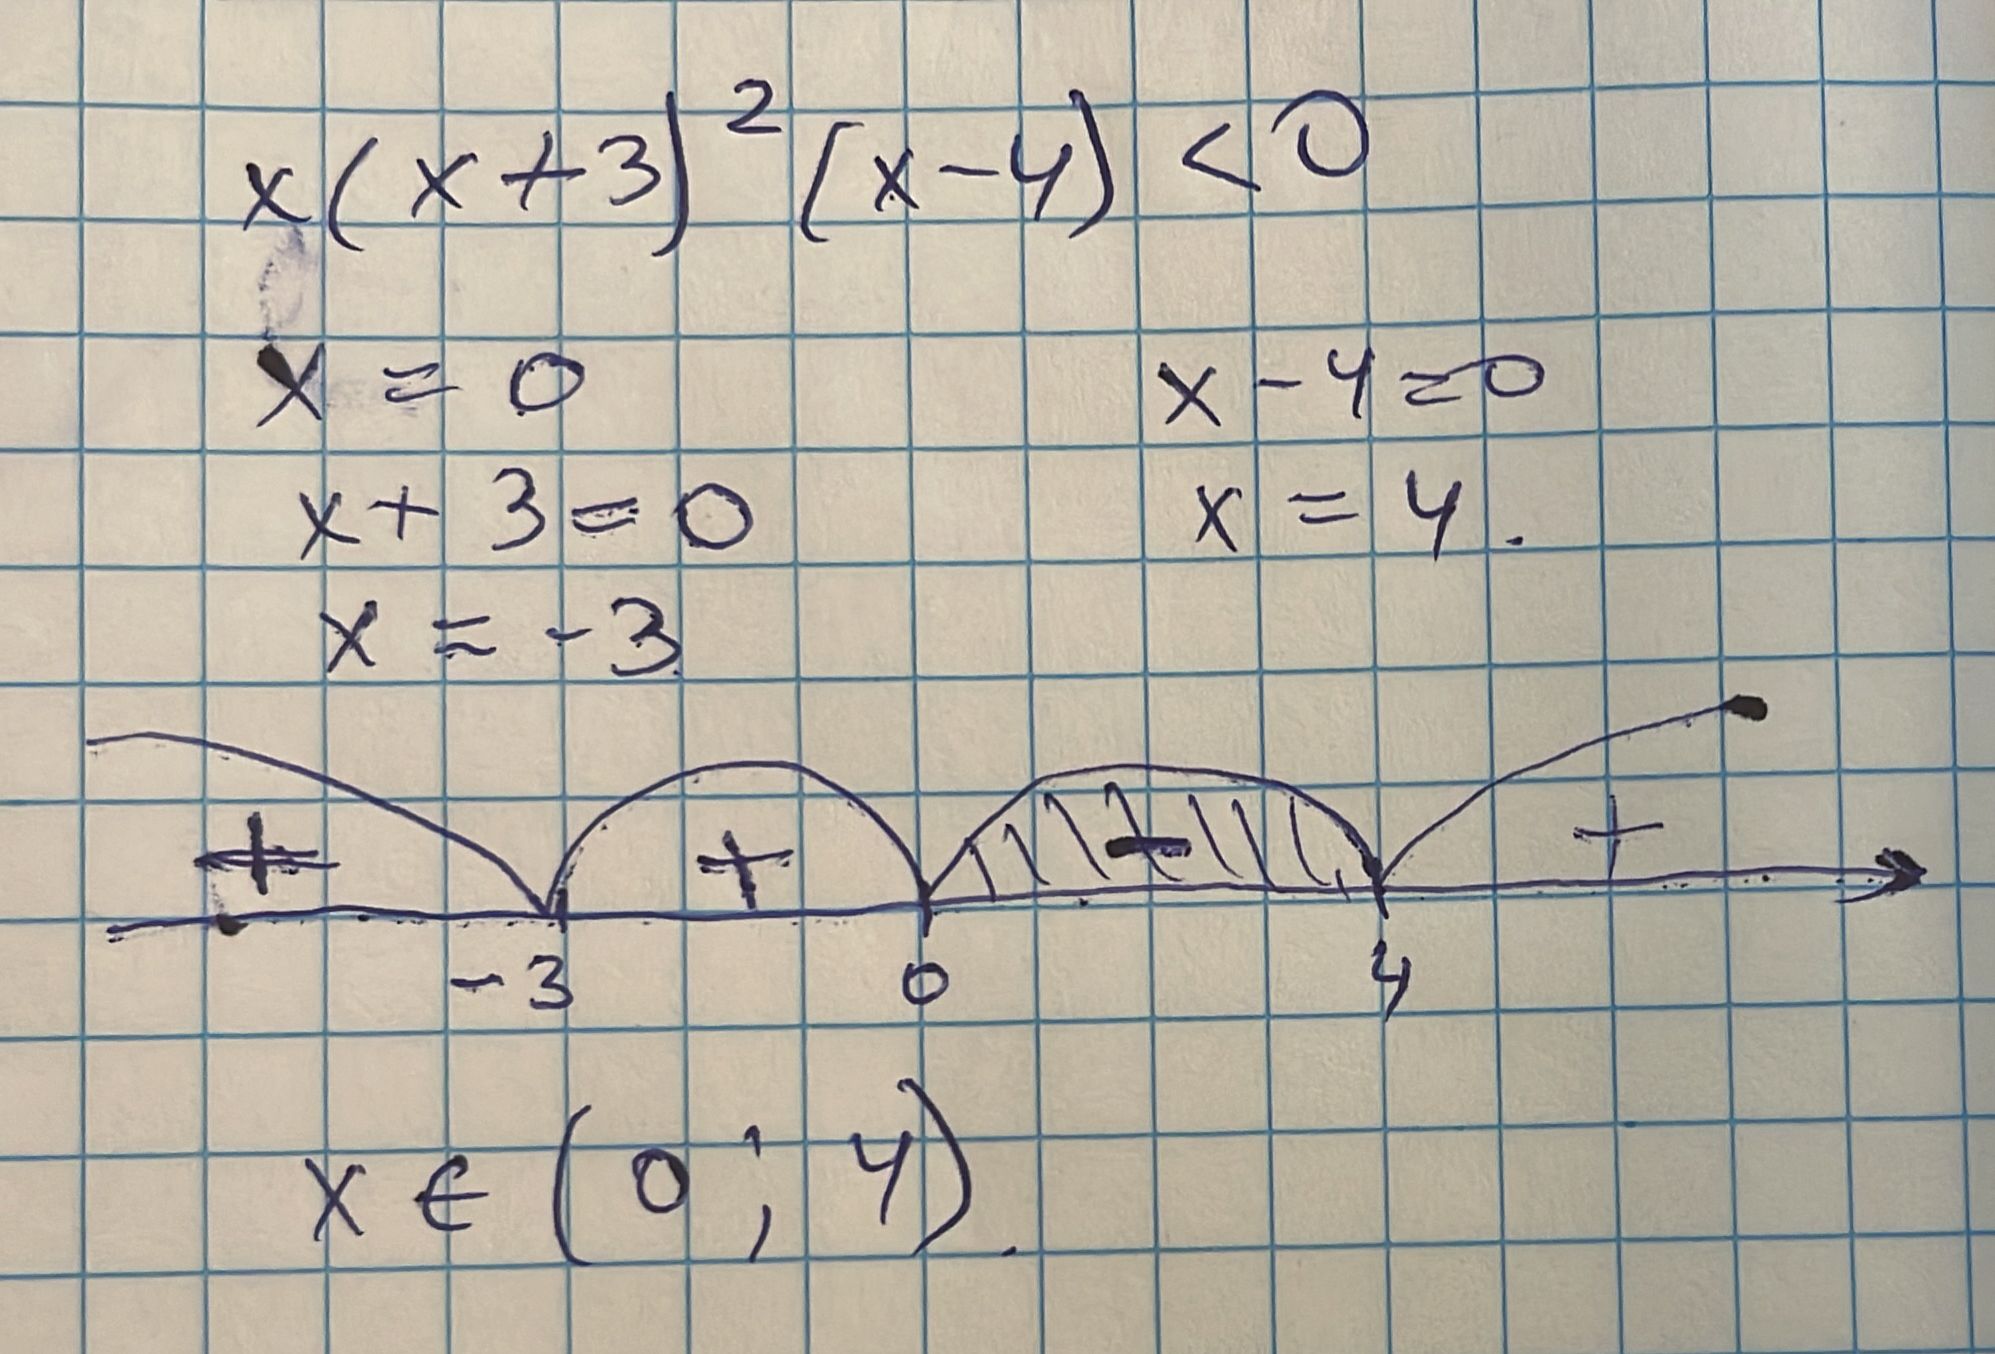 x(x+3)²(x-4) <0
x = 0
x-4=0
x+3=0
x = 4.
x = -3
+ + - +
-3 0 4
x ∈ (0; 4).